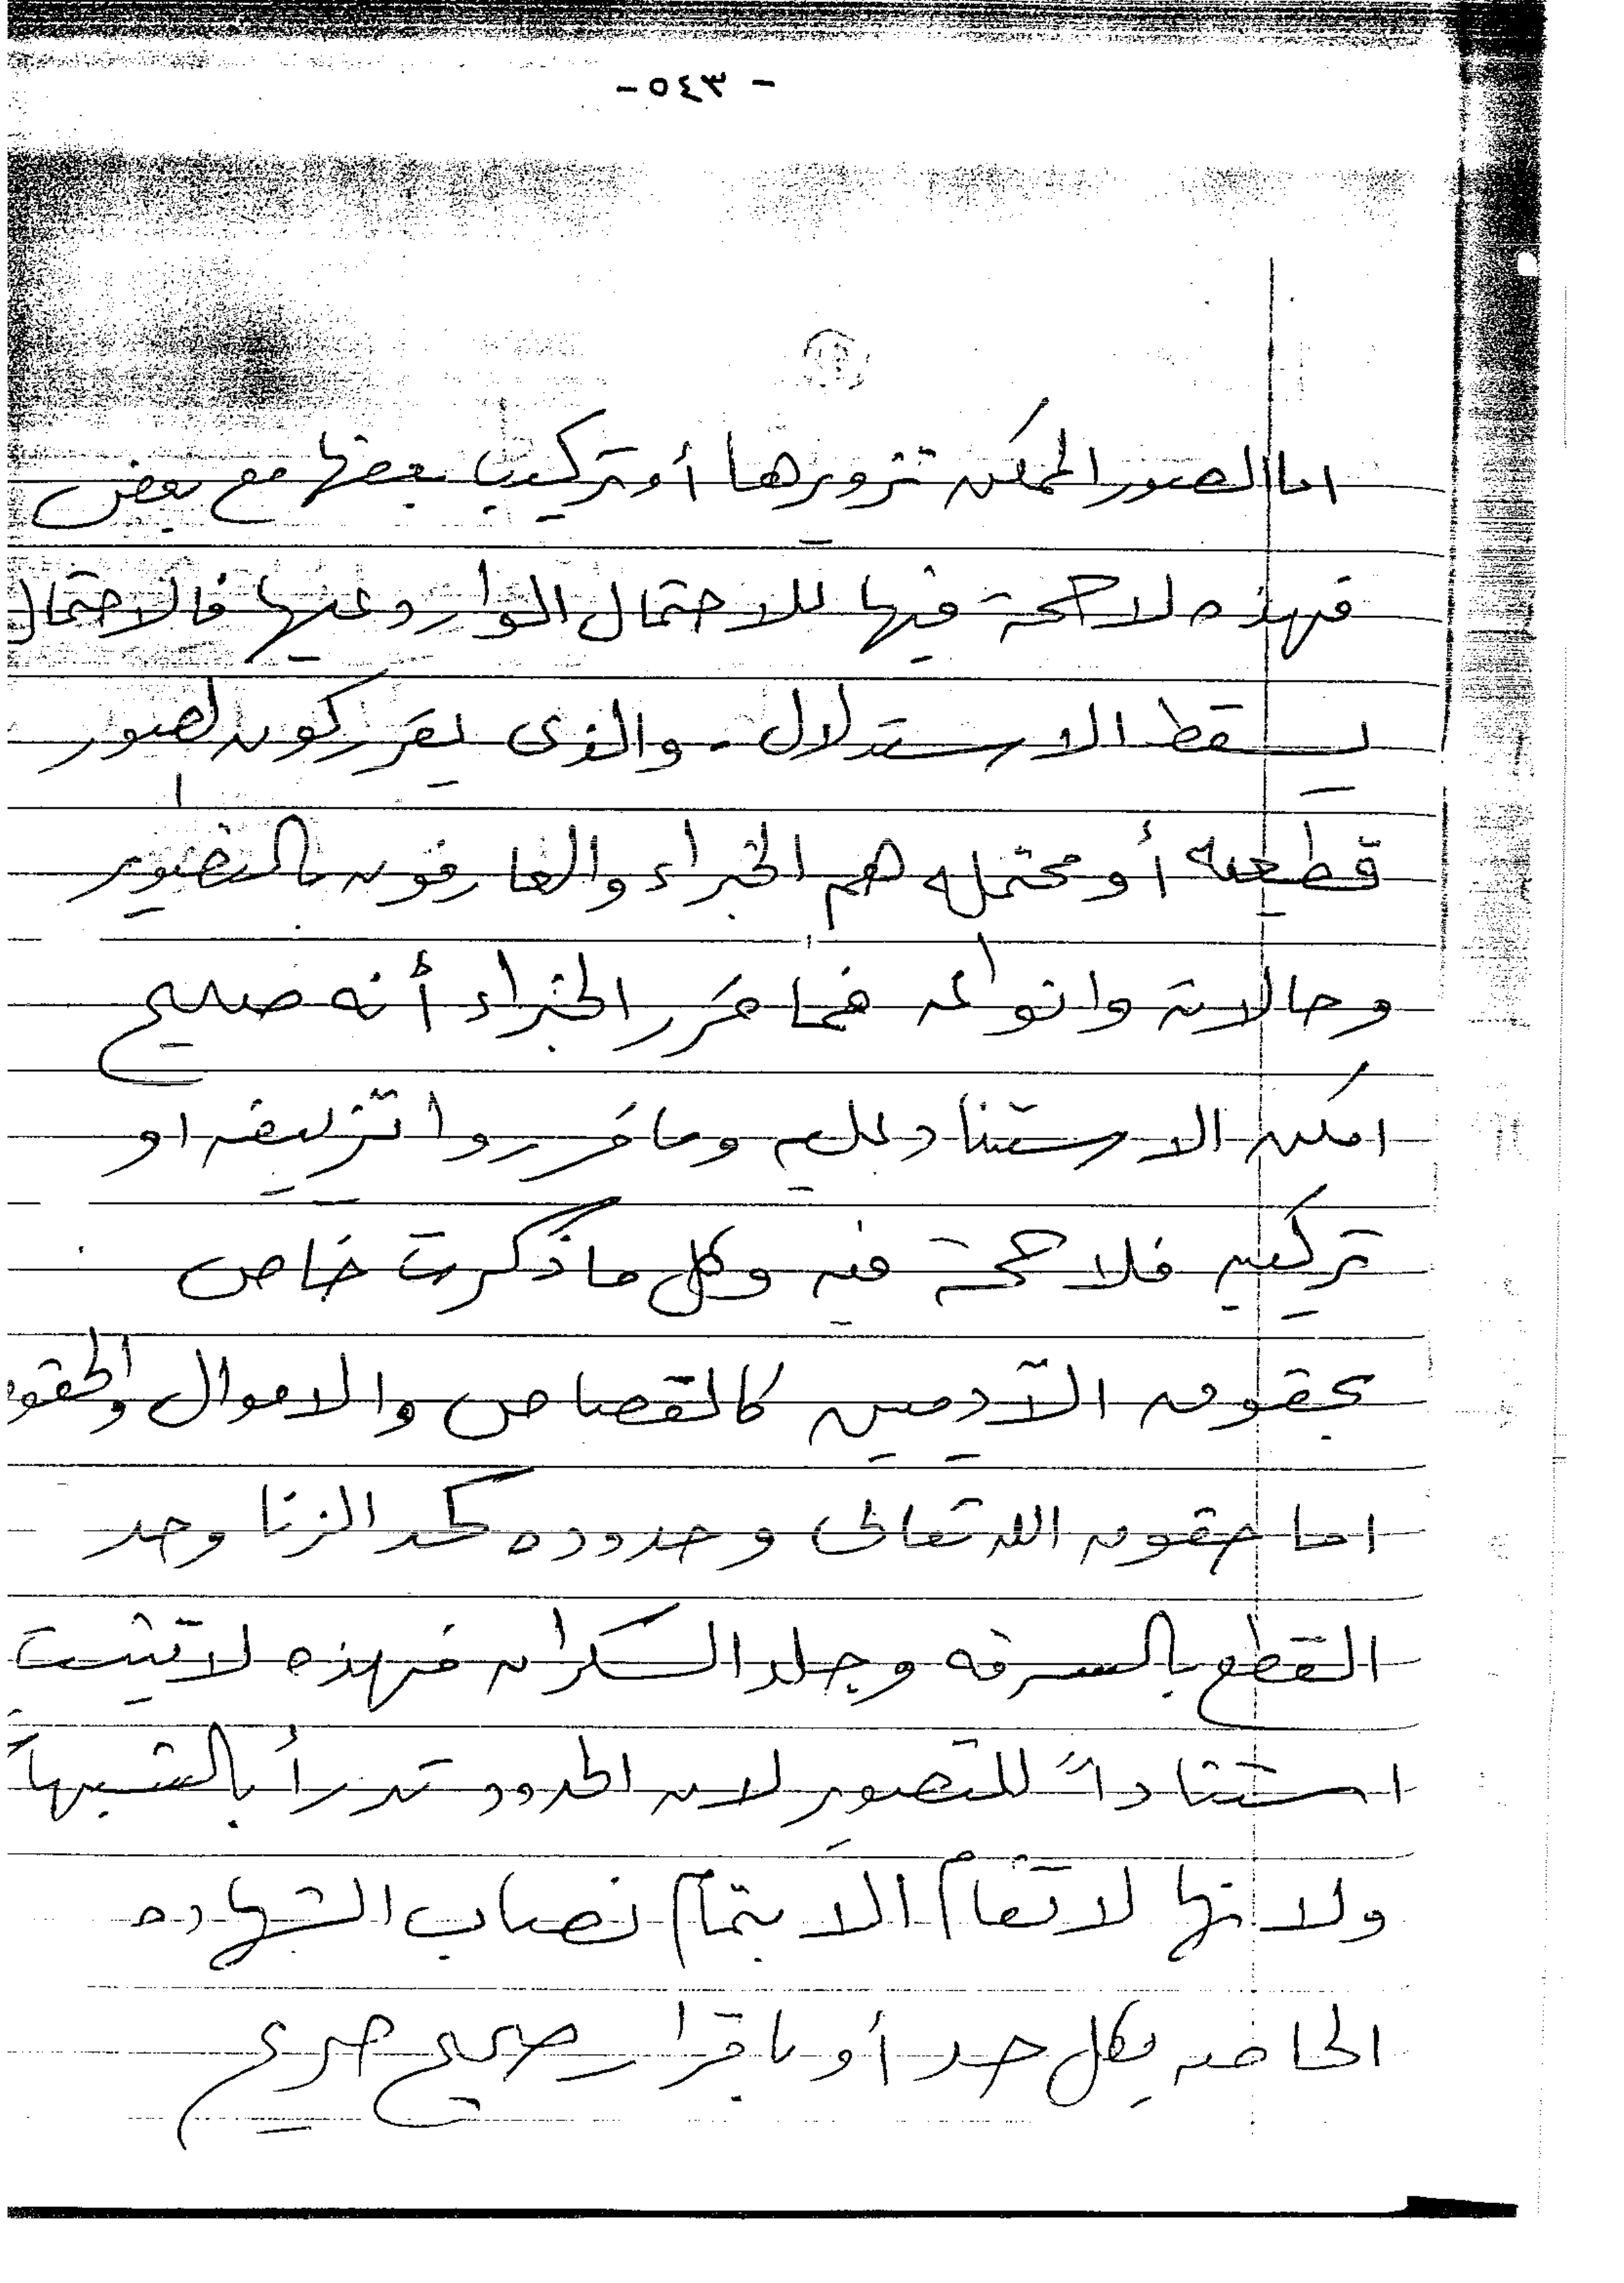 - ٣٤٥ -
اما الصور الممكن تزويرها أو تركيب بعضها مع بعض
فهذه لا حجة فيها للاحتمال الوارد عليها فالاحتمال
يسقط الاستدلال . والذى يقرر كون الصور
قطعيه أو محتمله هم الخبراء والعارفون بالتصوير
وحالاته وانواعه فما قرر الخبراء أنه صحيح
امكن الاستناد عليه وما قرروا تزييفه او
تركيبه فلا حجة فيه وكل ما ذكرت خاص
بحقوق الآدميين كالقصاص والاموال والحقو
اما حقوق الله تعالى وحدوده كحد الزنا وحد
القطع بالسرقه وجلد السكران فهذه لا تثبت
استناداً للتصوير لان الحدود تدرأ بالشبهات
ولانها لا تقام الا بتمام نصاب الشهاده
الخاصه بكل حد أو باقرار صحيح صريح